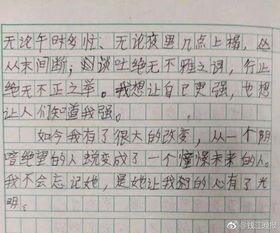 无论平时多忙、无论夜里几点上榻,从
从未间断;谈吐绝无不雅之词,行止
绝无不正之举。我想让自己更强,也想
让人们知道我强。
如今我有了很大的改变,从一个阴
暗绝望的人蜕变成了一个憧憬未来的人。
我不会忘记她,是她让我的心有了光
明。
@钱江晚报